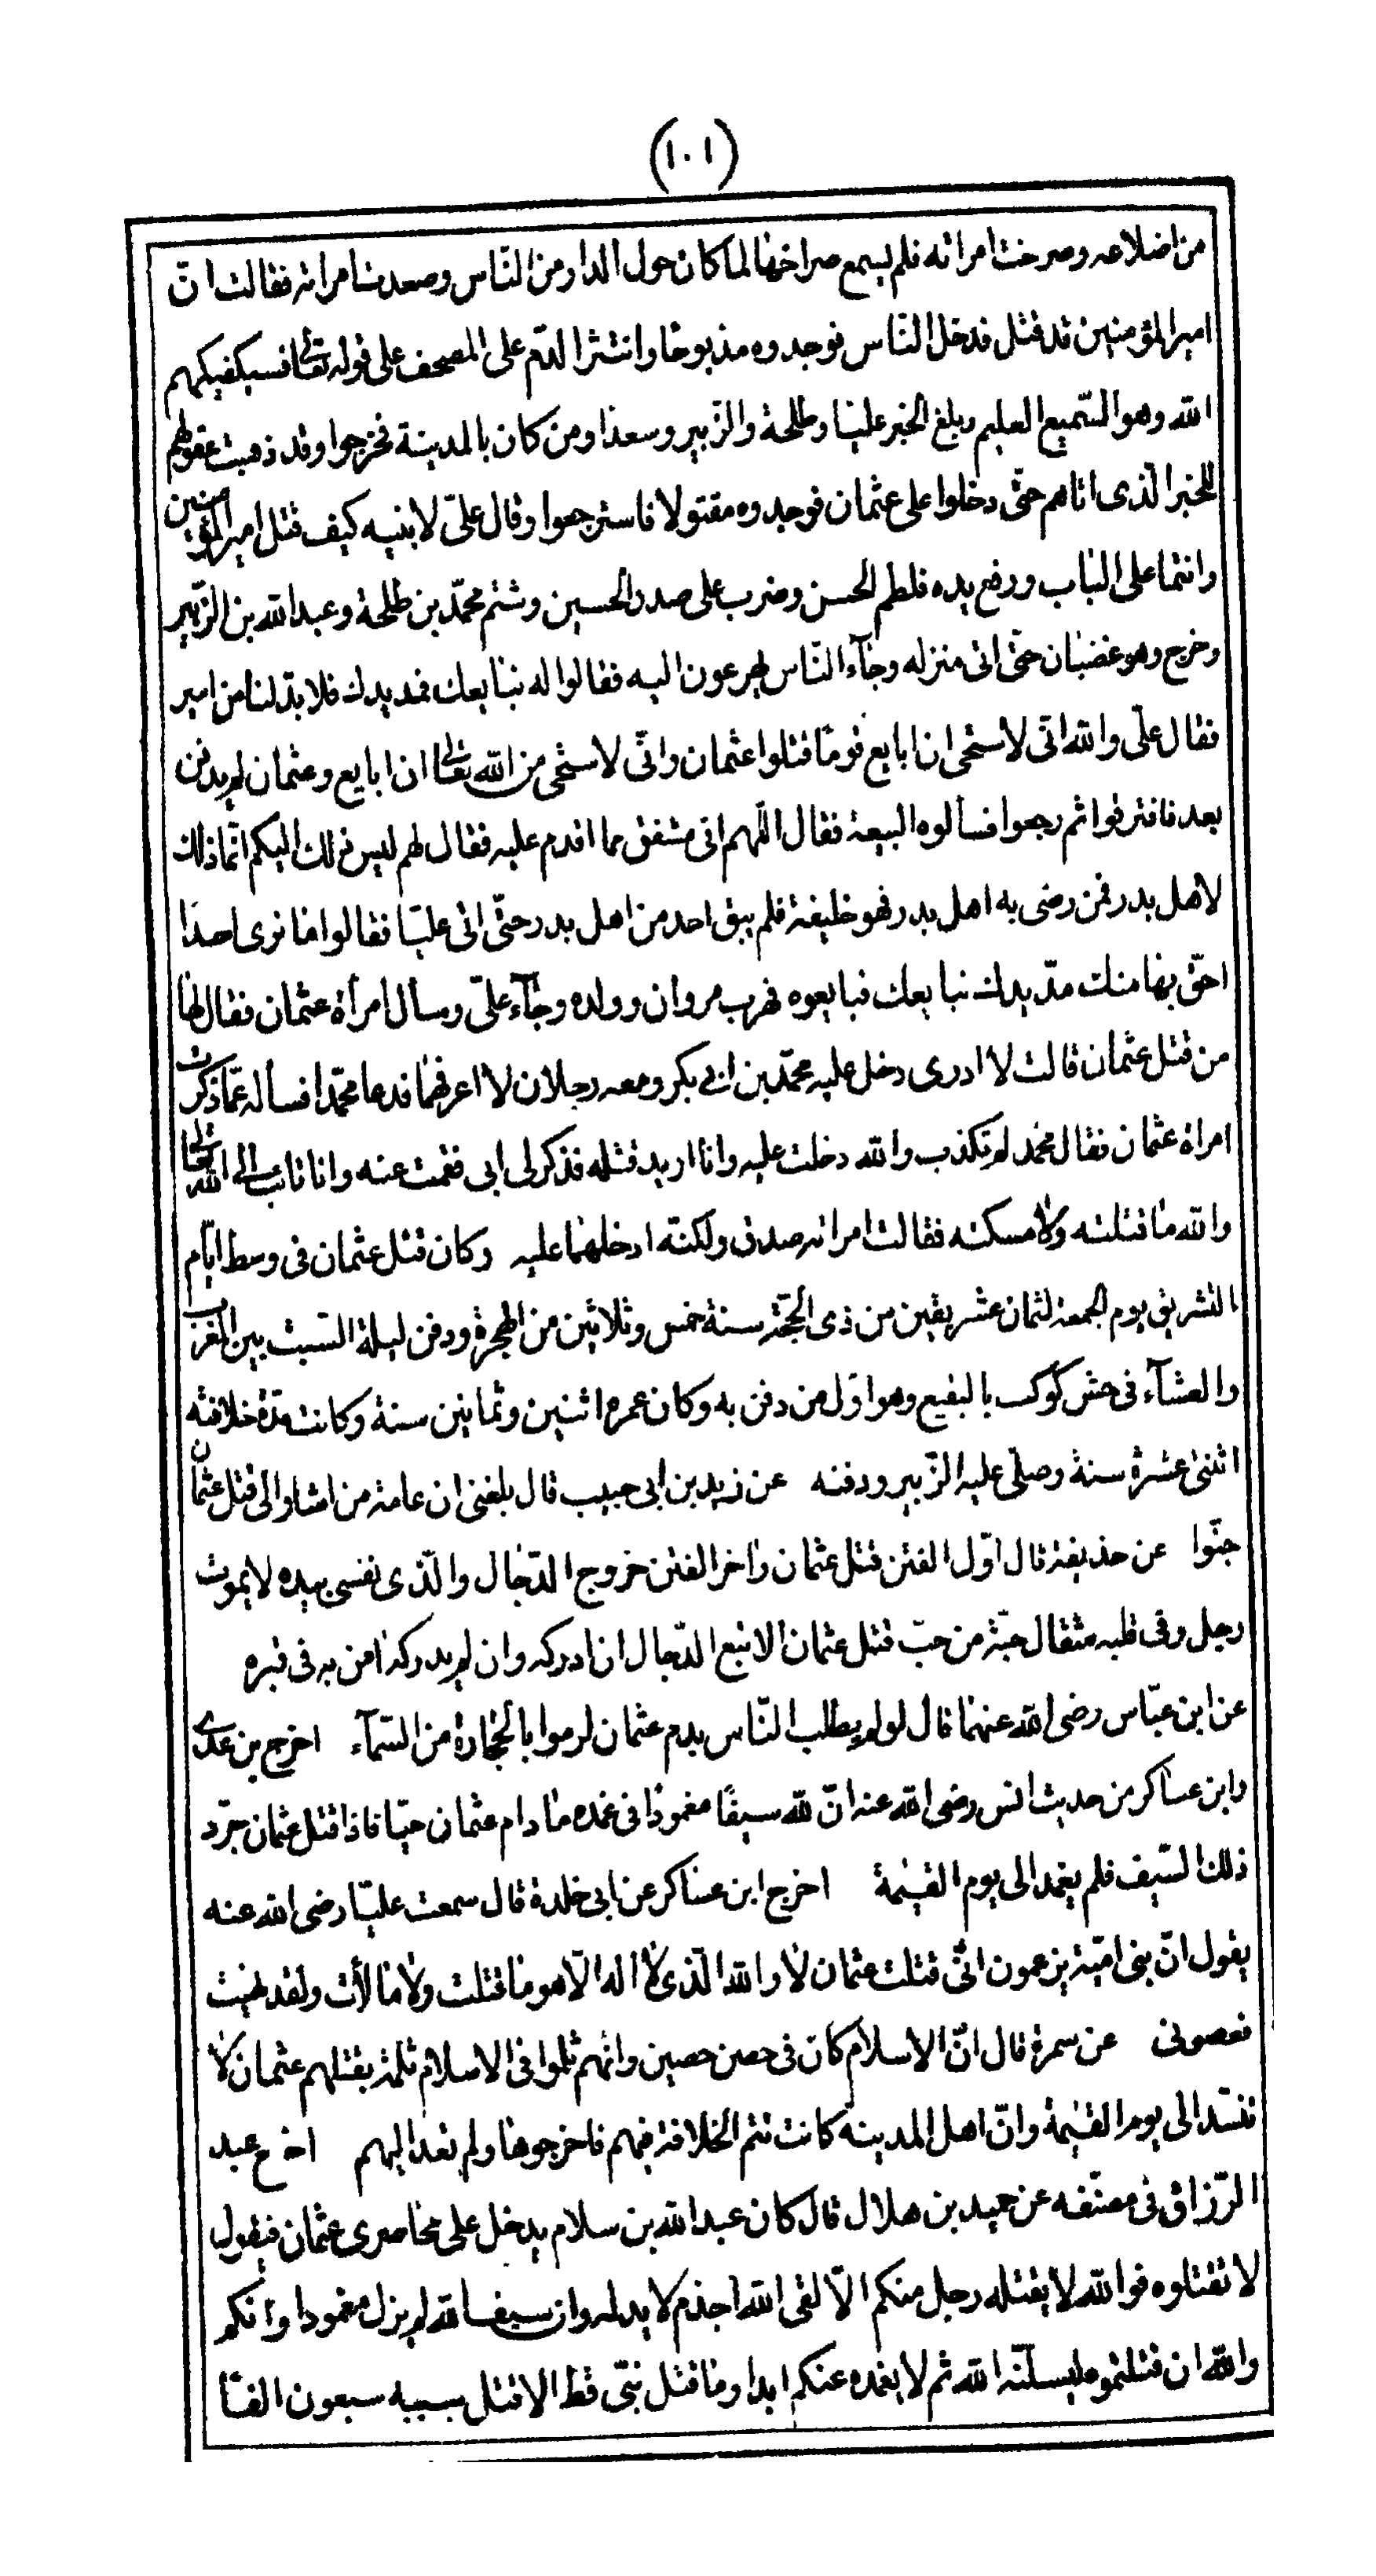 (١٠١)
من اضلاعه وصرخت امراته فلم يسمع صراخها لما كان حول الدار من النّاس وصعدت امراته فقالت انّ
امير المؤمنين قد قتل فدخل النّاس فوجدوه مذبوحًا وانتثر الدّم على المصحف على قوله تعالى فسيكفيكهم
الله وهو السّميع العليم وبلغ الخبر عليّا وطلحة والزّبير وسعدًا ومن كان بالمدينة فخرجوا وقد ذهبت عقولهم
للخبر الّذى اتاهم حتّى دخلوا على عثمان فوجدوه مقتولا فاسترجعوا وقال علىّ لابنيه كيف قتل امير المؤمنين
وانتما على الباب ورفع يده فلطم الحسن وضرب على صدر الحسين وشتم محمّد بن طلحة وعبد الله بن الزّبير
وخرج وهو غضبان حتّى اتى منزله وجآء النّاس يهرعون اليه فقالوا له نبايعك فمد يدك فلا بدّ لنا من امير
فقال علىّ والله انّى لاستحى ان ابايع قومًا قتلوا عثمان وانّى لاستحى من الله تعالى ان ابايع وعثمان لم يدفن
بعد فافترقوا ثم رجعوا فسألوه البيعة فقال اللّهم انى مشفق مما اقدم عليه فقال لهم ليس ذلك اليكم انّما ذلك
لاهل بدر فمن رضى به اهل بدر فهو خليفة فلم يبق احد من اهل بدر حتّى اتى عليّا فقالوا ما نرى احدًا
احقّ بها منك مدّ يدك نبايعك فبايعوه فهرب مروان وولده وجآء علىّ وسأل امرأة عثمان فقال لها
من قتل عثمان قالت لا ادرى دخل عليه محمّد بن ابى بكر ومعه رجلان لا اعرفهما فدعا محمّدا فسأله عمّا ذكرت
امراة عثمان فقال محمد لم تكذب والله دخلت عليه وانا اريد قتله فذكر لى ابى فقمت عنه وانا تائب الى الله تعالى
والله ما قتلته ولا مسكته فقالت امراته صدق ولكنّه ادخلهما عليه وكان قتل عثمان فى وسط ايّام
التشريق يوم الجمعة لثمان عشر بقين من ذى الحجّة سنة خمس وثلاثين من الهجرة ودفن ليلة السّبت بين المغرب
والعشآء فى حش كوكب بالبقيع وهو اوّل من دفن به وكان عمره اثنين وثمانين سنة وكانت مدّة خلافته
اثنى عشرة سنة وصلّى عليه الزّبير ودفنه عن زيد بن ابى حبيب قال بلغنى ان عامة من اشاوا لى قتل عثمان
جنّوا عن حذيفة قال اوّل الفتن قتل عثمان واخر الفتن خروج الدّجال والّذى نفسى بيده لا يموت
رجل وفى قلبه مثقال حبّة من حبّ قتل عثمان الا تبع الدّجال ان ادركه وان لم يدركه امن به فى قبره
عن ابن عبّاس رضى الله عنهما قال لو لم يطلب النّاس بدم عثمان لرموا بالحجارة من السّمآء اخرج بن عدى
وابن عساكر من حديث انس رضى الله عنه انّ لله سيفًا مغمودًا فى غمده ما دام عثمان حيّا فاذا قتل عثمان جرّد
ذلك السّيف فلم يغمد الى يوم القيمة اخرج ابن عساكر عن ابى خلدة قال سمعت عليّا رضى الله عنه
يقول انّ بنى اميّة يزعمون انّى قتلت عثمان لا والله الّذى لا اله الّا هو ما قتلت ولا مالأت ولقد نهيت
فعصونى عن سمرة قال انّ الاسلام كان فى حصن حصين وانّهم ثلموا فى الاسلام ثلمة بقتلهم عثمان لا
تنسّد الى يوم القيمة وانّ اهل المدينة كانت نتم الخلافة فيهم فاخرجوها ولم تعد اليهم اخرج عبد
الرّزاق فى مصنّفه عن حميد بن هلال قال كان عبد الله بن سلام يدخل على محاصرى عثمان فيقول
لا تقتلوه فوالله لا يقتله رجل منكم الّا لقى الله اجذم لا يد له وان سيف الله لم يزل مغمودا وانّكم
والله ان قتلتموه ليسلّنه الله ثم لا يغمده عنكم ابدا وما قتل نبّى قط الا قتل بسببه سبعون الفًا